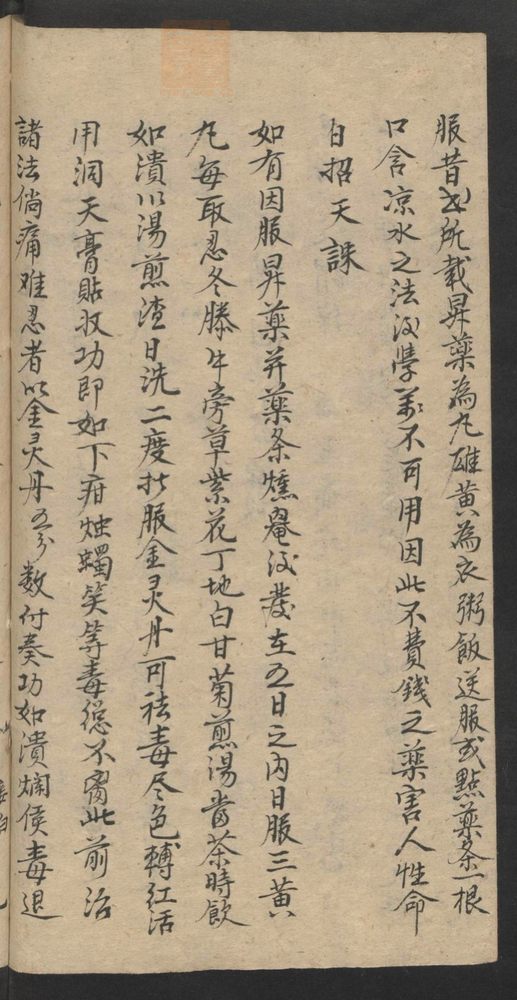 服昔所載昇藥為丸雄黃為衣粥飯送服或點藥条一根
口含凉水之法後學萬不可用因此不費錢之藥害人性命
自招天誅
如有因服昇藥并藥条燻罨後發在五日之內日服三黃
丸每取忍冬藤牛旁草紫花丁地白甘菊煎湯當茶時飲
如潰以湯煎渣日洗二度批服金灵丹可祛毒尽色轉紅活
用洞天膏貼收功即如下疳蠟等毒總不須此前治
諸法倘痛难忍者以金灵丹五分数付奏功如潰爛侯毒退